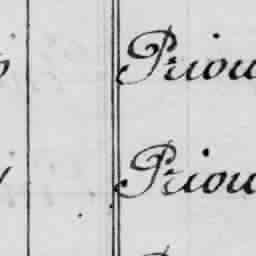 Priou
Priou